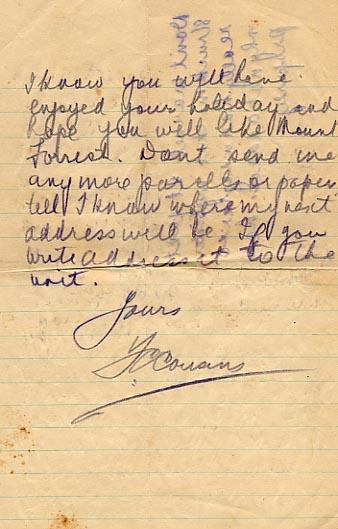 I know you will have
enjoyed your holiday and
hope you will like Mount
Forrest. Dont send me
any more parcels or paper
till I know where my next
address will be. If you
write address it to the
unit.
Yours
Cousans